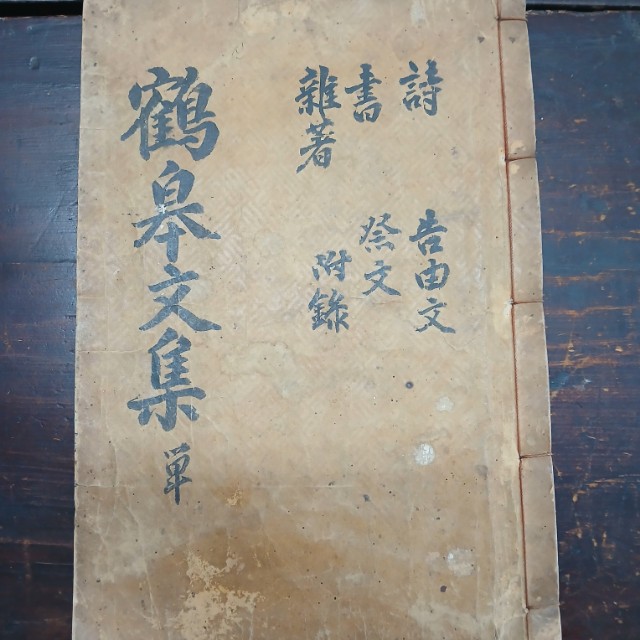 詩 告由文
書 祭文
雜著 附錄
鶴皐文集 單